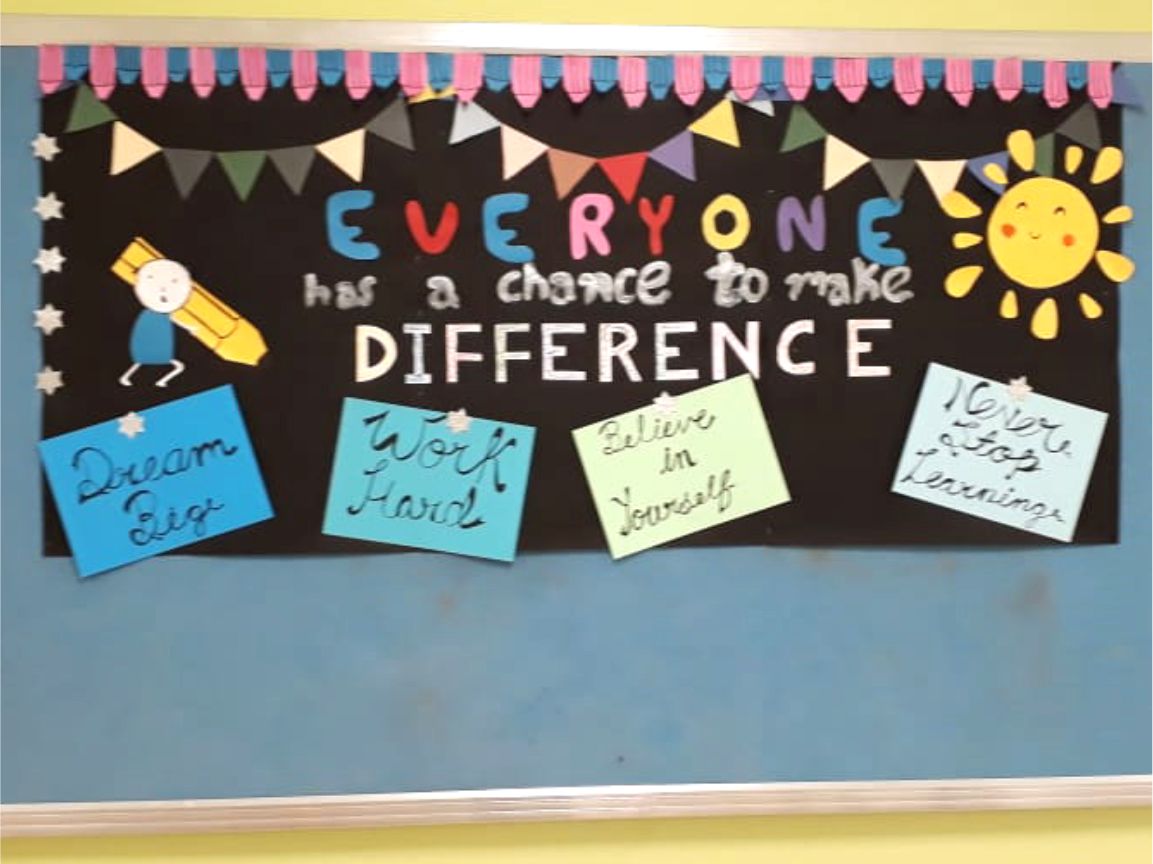 EVERYONE
has a chance to make
DIFFERENCE
Dream
Big.
Work
Hard
Believe
in
Yourself
Never
Stop
Learning.